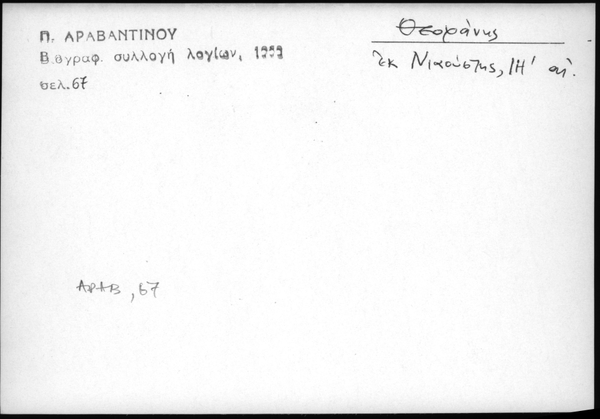 Π. ΑΡΑΒΑΝΤΙΝΟΥ
Βιογραφ. συλλογή λογίων,
σελ.67
Θεοφάνης
ἐκ Νιαούστης, ΙΗ΄ αἰ.
ΑΡΑΒ, 67